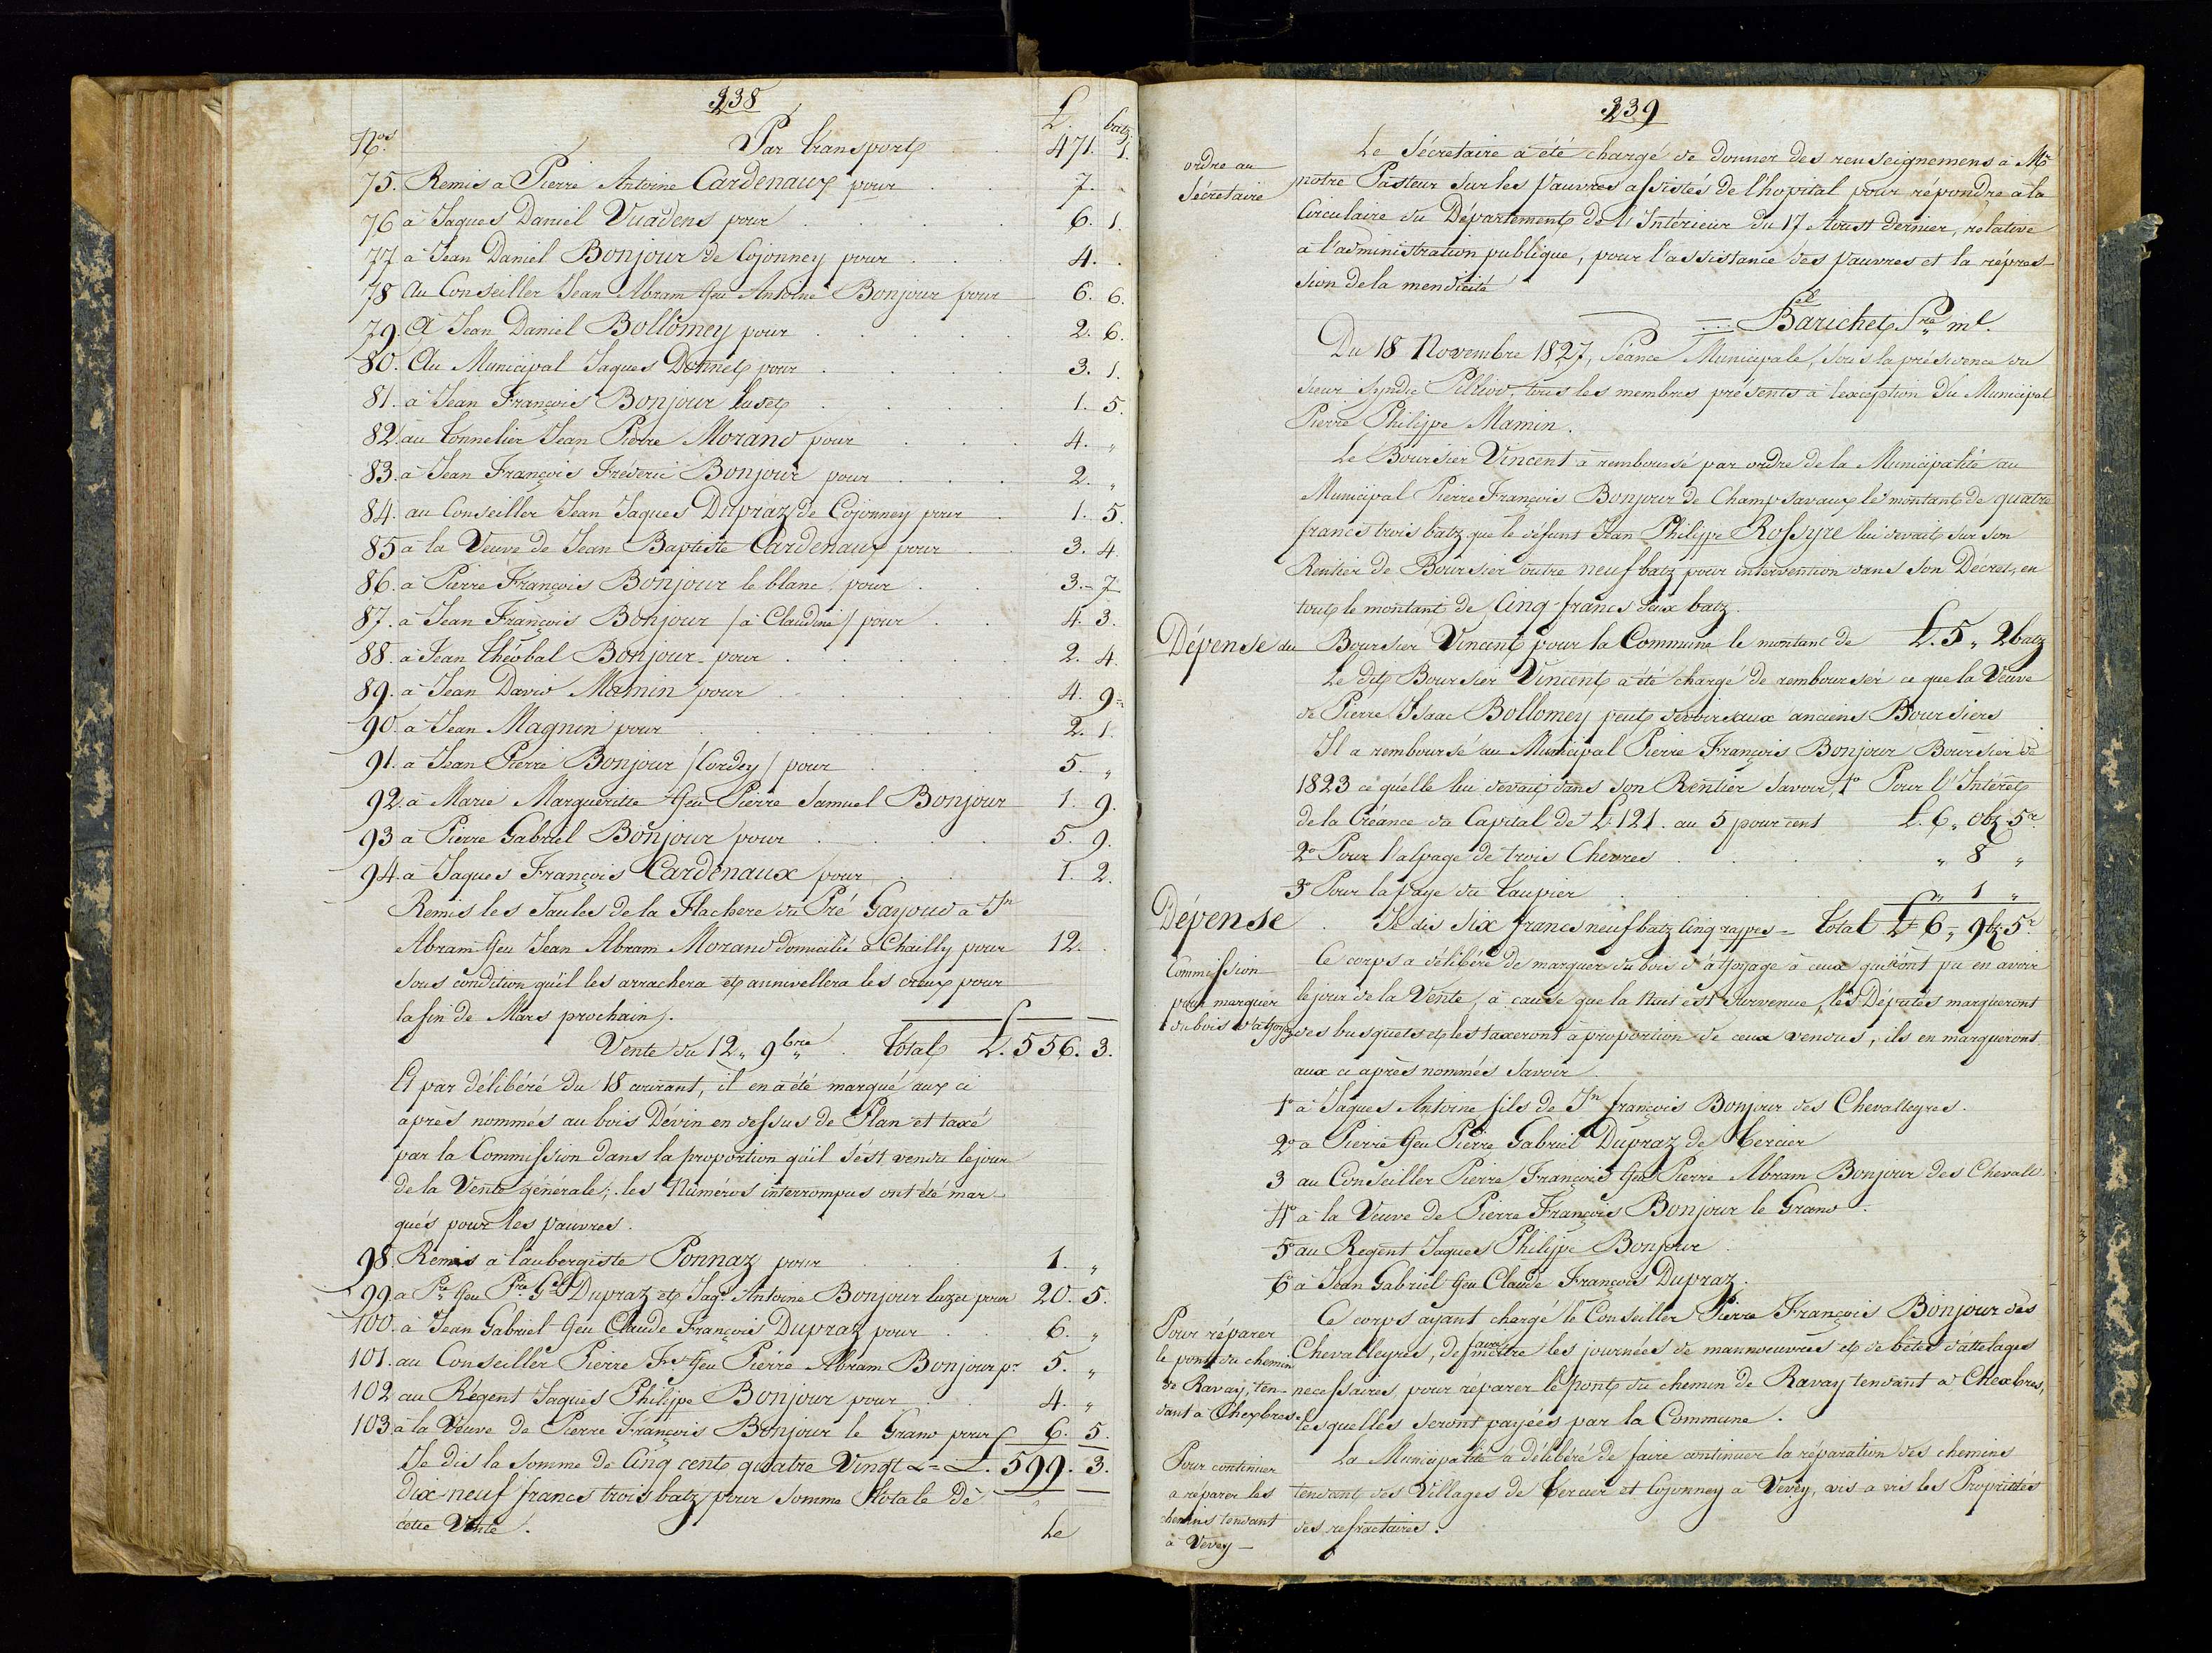 338
Nos. L. batz.
Par transport 471. 1.
75. Remis à Pierre Antoine Cardenaux pour 7.
76 à Jaques Daniel Vuadens pour 6. 1.
77 à Jean Daniel Bonjour de Cojonney pour 4.
78 Au Conseiller Jean Abram feu Antoine Bonjour pour 6. 6.
79. A Jean Daniel Bollomey pour 2. 6.
80. Au Municipal Jaques Donnet pour 3. 1.
81. à Jean François Bonjour Luset 1. 5.
82. au tonnelier Jean Pierre Morand pour 4. "
83. à Jean François Fréderic Bonjour pour 2. "
84. au Conseiller Jean Jaques Dupraz de Cojonney pour 1. 5.
85 à la Veuve de Jean Baptiste Cardenaux pour 3. 4.
86. à Pierre François Bonjour le blanc pour 3.- 7
87. à Jean François Bonjour /à Claudine/ pour 4. 3.
88. à Jean théobal Bonjour pour 2. 4.
89. à Jean David Mamin pour 4. 9.
90. à Jean Magnin pour 2. 1.
91. à Jean Pierre Bonjour /Cordey/ pour 5. "
92. à Marie Marguerite feu Pierre Samuel Bonjour 1. 9.
93 à Pierre Gabriel Bonjour pour 5. 9.
94 à Jaques François Cardenaux pour 1. 2.
Remis les Saules de la Flachere du Pré Gayoud à Jn
Abram feu Jean Abram Morand domicilié à Chailly pour 12.
sous condition qu'il les arrachera et annivellera les creux pour
la fin de Mars prochain.
Vente du 12. 9bre total L. 556. 3.
Et par délibéré du 18 courant, il en a été marqué aux ci
après nommés au bois Dévin en dessus de Plan et taxé
par la Commission dans la proportion qu'il s'est vendu le jour
de la Vente générale; les Numéros interrompus ont été mar-
qués pour les pauvres.
98 Remis à l'aubergiste Ponnaz pour 1. "
99. à Pre feu Pre Gel Dupraz et Jaqs Antoine Bonjour luzet pour 20. 5.
100. à Jean Gabriel feu Claude François Dupraz pour 6. "
101. au Conseiller Pierre Fs feu Pierre Abram Bonjour pr 5. "
102 au Régent Jaques Philippe Bonjour pour 4. "
103 à la Veuve de Pierre François Bonjour le Grand pour 6. 5.
Je dis la somme de Cinq cent quatre Vingt L. 599. 3.
dix-neuf francs trois batz pour somme totale de
cette Vente.
Le
339
ordre au
Sécretaire
Le Sécretaire a été chargé de donner des renseignemens à Mr
notre Pasteur sur les Pauvres assistés de l'hopital pour répondre à la
Circulaire du Département de l'Intérieur du 17 Aoust dernier, relative
à l'administration publique, pour l'assistance des pauvres et la répres-
sion de la mendicité
Barichet Sre ml.
Du 18 Novembre 1827, Séance Municipale, sous la présidence du
sieur Syndic Pilliod, tous les membres présents à l'exception du Municipal
Pierre Philippe Mamin.
Le Boursier Vincent a remboursé par ordre de la Municipalité au
Municipal Pierre François Bonjour de Champsavaux le montant de quatre
francs trois batz que le défunt Jean Philippe Rossyre lui devait sur son
Rentier de Boursier outre neuf batz pour intervention dans son Décret, en
tout le montant de Cinq francs deux batz.
Dépense du Boursier Vincent pour la Commune le montant de L. 5 " 2 batz
Le dit Boursier Vincent a été chargé de rembourser ce que la Veuve
de Pierre Isaac Bollomey peut devoir aux anciens Boursiers
Il a remboursé au Municipal Pierre François Bonjour Boursier de
1823 ce qu'elle lui devait dans son Rentier Savoir, 1o Pour l'Interêt
de la Créance du Capital de L. 121. au 5 pour cent L. 6 " 0bz. 5r.
2o Pour l'alpage de trois Chevres " 8 "
3o Pour la paye du taupier " 1 "
Dépense . Je dis Six francs neuf batz Cinq rappes - total L. 6 " 9bz. 5r.
Commission
pour marquer
du bois d'affoyage
Ce corps a délibéré de marquer du bois d'affoyage à ceux qui n'ont pu en avoir
le jour de la Vente, à cause que la Nuit est survenue, les Députés marqueront
des busquets et les taxeront à proportion de ceux vendus, ils en marqueront
aux ci après nommés Savoir
1o à Jaques Antoine fils de Jn françois Bonjour des Chevalleyres.
2o à Pierre feu Pierre Gabriel Dupraz de tercier
3 au Conseiller Pierre François feu Pierre Abram Bonjour des Chevall
4o à la Veuve de Pierre François Bonjour le Grand.
5o au Régent Jaques Philippe Bonjour
6o à Jean Gabriel feu Claude François Dupraz.
Pour réparer
le pont du chemin
de Ravay, ten-
dant à Chexbres
Ce corps ayant chargé le Conseiller Pierre François Bonjour des
Chevalleyres, de faire mettre les journées de manoeuvres et de bêtes d'attelages
necessaires, pour réparer le pont du chemin de Ravay tendant à Chexbres,
lesquelles seront payées par la Commune.
Pour continuer
à réparer les
chemins tendant
à Vevey -
La Municipalité a délibéré de faire continuer la réparation des chemins
tendant des Villages de tercier et Cojonney à Vevey, vis à vis les Propriétés
des refractaires.